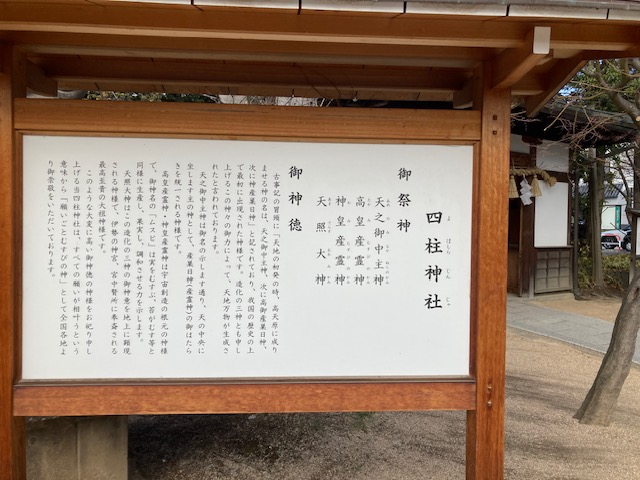 四柱神社
よはしらじんじゃ
御祭神
天之御中主神
高皇産霊神
神皇産霊神
天照大神
御神徳
古事記の冒頭に「天地の初発の時、高天原に成り
ませる神の名は、天之御中主神、次に高御産巣日神、
次に神産巣日神」と記されており、我国の歴史の上
で最初に出現された神様です。造化の三神とも申し
上げるこの神々の御力によって、天地万物が生成さ
れたと言われております。
天之御中主神は御名の示します通り、天の中央に
坐します主の神として、産巣日神(産霊神)の御はたら
きを統一される神様です。
高皇産霊神・神皇産霊神は宇宙創造の根元の神様
で、御神名の「ムスビ」は実をむすぶ、苔がむす等と
同様に生産し、果実し、調和させる力を示します。
天照大神はこの造化の三神の御神意を地上に顕現
される神様で、伊勢の神宮、宮中賢所に奉斎される
最高至貴の大祖神様です。
このような大変に高い御神徳の神様をお祀り申し
上げる当四柱神社は、すべての願いが相叶うという
意味から「願いごとむすびの神」として全国各地よ
り御崇敬をいただいております。